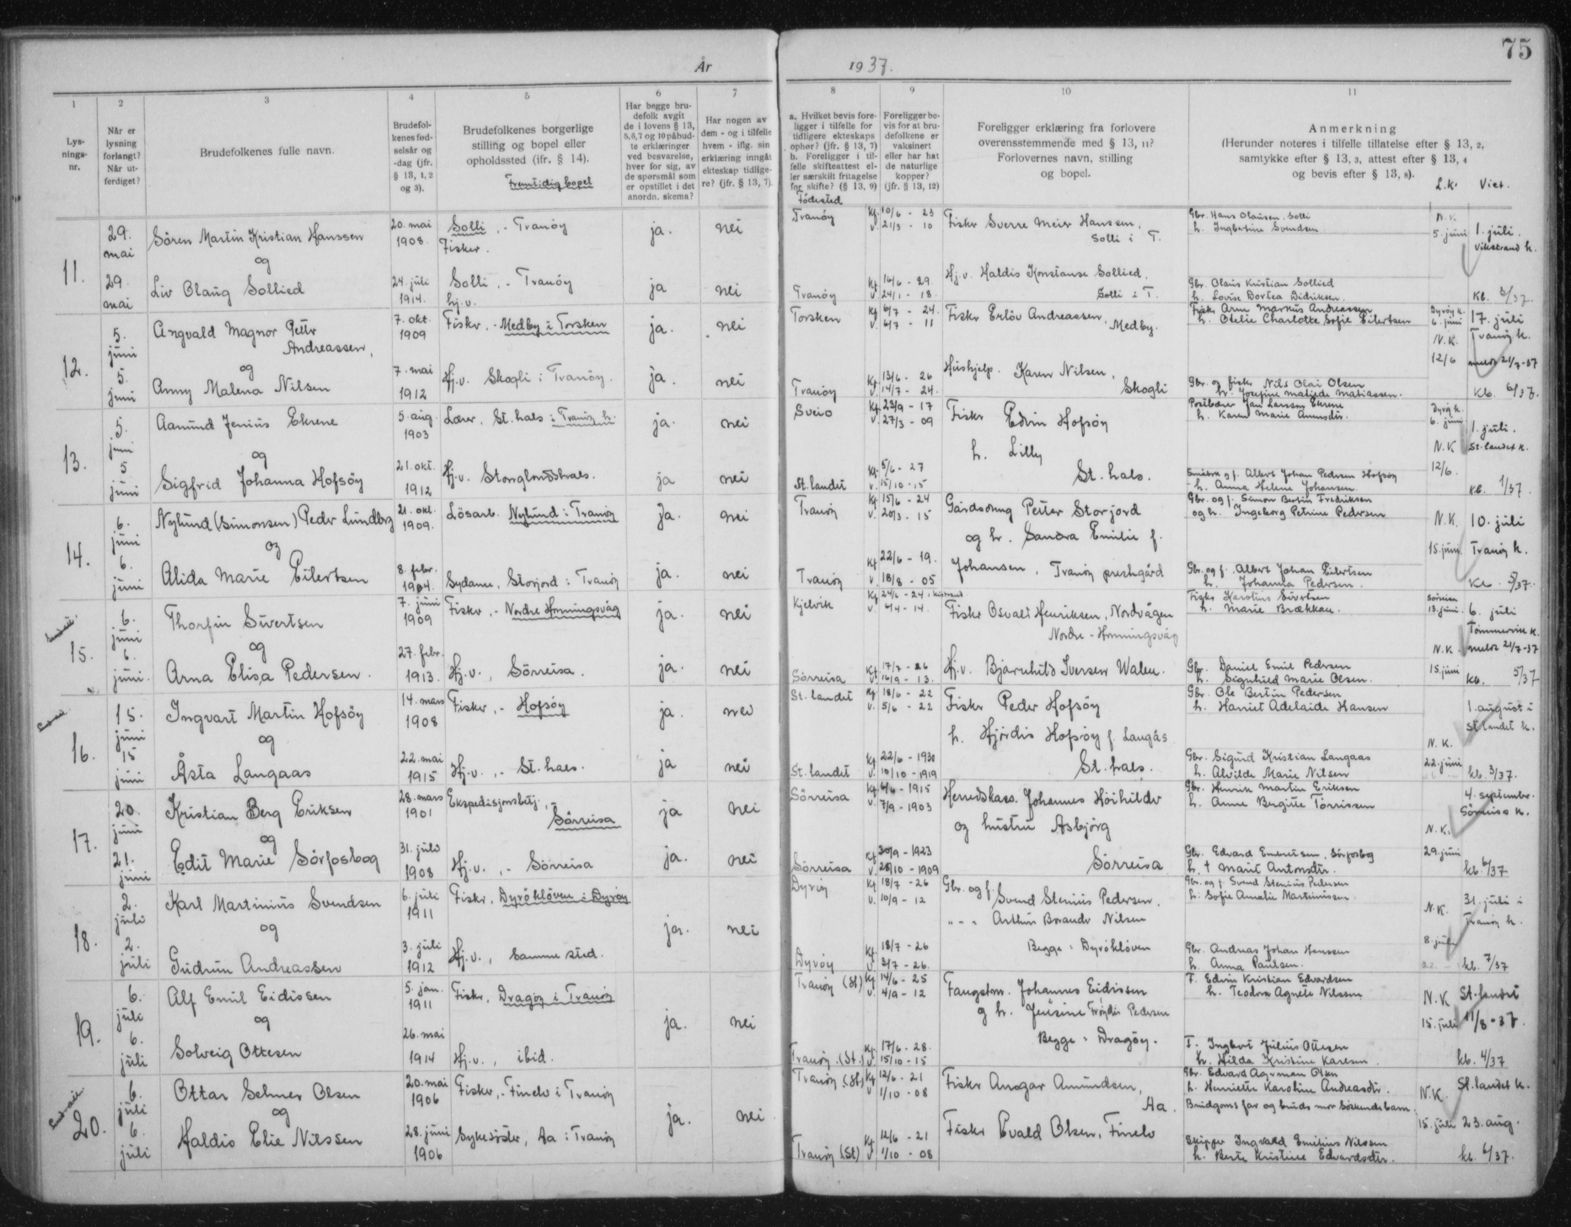 75
År 1937.
1 2 3 4 5 6 7 8 9 10 11
Lysnings-nr.
Når er lysning forlangt? Når utferdiget?
Brudefolkenes fulle navn.
Brudefolkenes fødselsår og -dag (jfr. § 13, 1, 2 og 3).
Brudefolkenes borgerlige stilling og bopel eller opholdssted (ifr. § 14).
Fremtidig bopel
Har begge brudefolk avgit de i lovens § 13, 5, 6, 7 og 10 påbudte erklæringer ved besvarelse, hver for sig, av de spørsmål som er opstillet i det anordn. skema?
Har nogen av dem - og i tilfelle hvem - iflg. sin erklæring inngått ekteskap tidligere? (jfr. § 13, 7).
a. Hvilket bevis foreligger i tilfelle for tidligere ekteskaps ophør? (jfr. § 13, 7)
b. Foreligger i tilfelle skifteattest eller særskilt fritagelse for skifte? (§ 13, 9)
Fødested
Foreligger bevis for at brudefolkene er vaksinert eller har hat de naturlige kopper? (jfr. § 13, 12)
Foreligger erklæring fra forlovere overensstemmende med § 13, 11? Forlovernes navn, stilling og bopel.
Anmerkning
(Herunder noteres i tilfelle tillatelse efter § 13, 2, samtykke efter § 13, 3, attest efter § 13, 4 og bevis efter § 13, 8).
L.k. Viet.
11. 29. mai Sören Martin Kristian Hanssen 20. mai 1908. Solli, - Tranöy Fisker. ja. nei Tranöy Kf. 10/6 - 23 v. 21/3 - 10 Fisker Sverre Meier Hanssen, Solli i T. Gbr. Hans Olausen, Solli h. Ingbertine Svendsen N.K. 5. juni 1. juli. Vikstrand k.
og
29. mai Liv Olaug Sollied 24. juli 1914. Solli, - Tranöy hj.v. ja nei Tranöy Kf. 16/6 - 29. v. 24/1 - 18. Hj.v. Haldis Konstanse Sollied. Solli i T. Gbr. Olaus Kristian Sollied h. Lovise Dortea Didriksen. kb. 3/37.
12. 5. juni Angvald Magnor Petter Andreassen, 7. okt. 1909 Fisker, - Medby i Torsken ja. nei Torsken Kf. 6/7 - 24. v. 6/7 - 11 Fisker Erlöv Andreassen, Medby. Fisker Arne Markus Andreassen h. Otelie Charlotte Sofie Eilertsen Dyröy k. 6. juni N.K. 12/6 17. juli Tranöy k.
og
5. juni Anny Malena Nilsen 7. mai 1912 Hj.v. Skogli i Tranöy. ja. nei Tranöy Kf. 13/6 - 26 v. 14/7 - 24. Hushjelp. Karen Nilsen, Skogli Gbr. og fisker Nils Olai Olsen h. Josefine Matjede Matiassen. meldt 21/7-37 kb. 6/37.
13. 5. juni Aamund Jenius Ekrene 5. aug. 1903 Lærer, St.hals i Tranöy h. ja. nei Sveio Kf. 23/9 - 17 v. 27/3 - 09 Fisker Edvin Hofsöy h. Lilly St. hals. h. Karen Marie Amundsdtr. Dyröy k. 6. juni N.K 12/6. 1. juli. St.landet k.
og
5 juni Sigfrid Johanna Hofsöy 21. okt. 1912 Hj.v. Stonglandshals. ja nei St. landet Kf. 5/6 - 27 v. 15/10 - 15 Småbr. og f. Albert Johan Pedersen Hofsöy h. Anna Helene Johansen kb. 1/37.
14. 6. juni Nylund (Simonsen) Peder Lundberg 21. okt. 1909. Lösarb. Nylund i Tranöy ja. nei Tranöy Kf. 15/6 - 24 v. 20/3 - 15 Gårdsonng Petter Storjord og h. Sandra Emilie f. Johansen, Tranöy prestgård Gbr. og f. Simon Bertin Fredriksen og h. Ingeborg Petrine Pedersen N.K. 15. juni 10. juli Tranöy k.
og
6. juni Alida Marie Eilertsen 8. febr. 1904 Sydame, Storjord i Tranöy ja. nei Tranöy Kf. 22/6 - 19. v. 18/8 - 05 Gbr. og f. Albert Johan Eilertsen h. Johanna Pedersen. kb. 5/37.
15. 6. juni Thorfin Sivertsen 7. juni 1909 Fisker, - Nordre Honningsvåg ja. nei Kjelvik Kf. 24/6 - 24 v. 6/4 - 14. Fisker Osvald Henriksen, Nordvågen Nordre - Honningsvåg Fisker Karolius Sivertsen h. Marie Brækkan. Sörreisa 13. juni. N.K. 15. juni 6. juli Tömmervik k. meldt 21/7-37
og
6. juni. Arna Elisa Pedersen. 27. febr. 1913. Hj.v., Sörreisa. ja. nei Sörreisa Kf. 17/7 - 26 v. 16/9 - 13. Hj.v. Bjarnhild Iversen Walen. Gbr. Daniel Emil Pedersen h. Signhild Marie Olsen. kb. 5/37
16. 15. juni Ingvart Martin Hofsöy 14. mars 1908 Fisker, - Hofsöy ja. nei St. landet Kf. 18/6 - 22 v. 5/6 - 22 Fisker Peder Hofsöy h. Hjördis Hofsöy f. Langås St. hals. Gbr. Ole Bertin Pedersen h. Haniet Adelaide Hansen N.K. 22. juni 1. august i St landet k.
og
15 juni Åsta Langaas 22. mai 1915 Hj.v. ,- St. hals. ja nei St. landet Kf. 22/6 - 1930 v. 10/10 - 1919 Gbr. Sigurd Kristian Langaas h. Alvilde Marie Nilsen kb. 3/37.
17. 20. juni Kristian Berg Eriksen 28. mars 1901 Ekspedisjonsbetj., - Sörreisa ja nei Sörreisa Kf. 6/6 - 1915 v. 7/9 - 1903 Herredskass. Johannes Höihilder og hustru Asbjörg Sörreisa Gbr. Henrik Martin Eriksen h. Anne Birgitte Torrissen N.K. 29. juni 4. september. Sörreisa k.
og
21. juni Edit Marie Sörfosbog 31. juli 1908 Hj.v. ,- Sörreisa ja. nei Sörreisa Kf. 30/9 - 1923 v. 28/10 - 1909 Gbr. Edvard Enertsen, Sörfosbog h. + Marit Antonsdtr. kb. 6/37
18. 2. juli Karl Martinius Svendsen 6. juli 1911 Fisker, Dyröklöven i Dyröy ja. nei Dyröy Kf. 18/7 - 26 v. 10/9 - 12 Gbr. og f. Svend Stenius Pedersen. " - " Arthur Brander Nilsen Begge i Dyröklöven Gbr. og f. Svend Stenius Pedersen h. Sofie Amalie Martinussen N.K. 8. juli 31. juli i Tranöy k.
og
2. juli Gudrun Andreassen 3. juli 1912 Hj.v., samme sted. Dyröy Kf. 18/7 - 26 v. 3/7 - 26. Gbr. Andreas Johan Hanssen h. Anna Paulsen. kb. 7/37
19. 6. juli Alf Emil Eidissen 5. jan. 1911 Fisker, Dragöy i Tranöy ja. nei Tranöy (St) Kf 14/6 - 25 v. 4/9 - 12 Fangstm. Johannes Eidissen og h. Jensine Fröjdis Pedersen Begge i Dragöy. F. Edvin Kristian Edvardsen h. Teodora Agnete Nilssen N.K 15. juli St.landet 11/8-37.
og
6. juli Solveig Ottesen 26. mai 1914 Hj.v., ibid. Tranöy (St.) Kf. 17/6 - 28. v. 15/10 - 15 F. Ingbert Julius Ottesen h. Hilda Kristine Karlsen. kb. 4/37
20. 6. juli Ottar Selmer Olsen 20. mai 1906 Fisker, - Finelv i Tranöy ja. nei Tranöy (St) Kf 12/6 - 21 v 1/10 - 08 Fisker Ansgar Amundsen, Aa. Fisker Evald Olsen, Finelv Gbr. Edvard Olsen h. Henriette Karoline Andreasdtr. Brudgoms far og bruds mor söskendebarn N.K. 15. juli St.landet k. 23. aug.
og
6. juli Haldis Elie Nilssen 28. juni 1906 Sykesöster, Aa i Tranöy Tranöy (St) Kf. 12/6 - 21 v. 1/10 - 08 Skipper Ingvald Emilius Nilssen h. Berte Kristine Edvardsdtr. kb. 6/37.